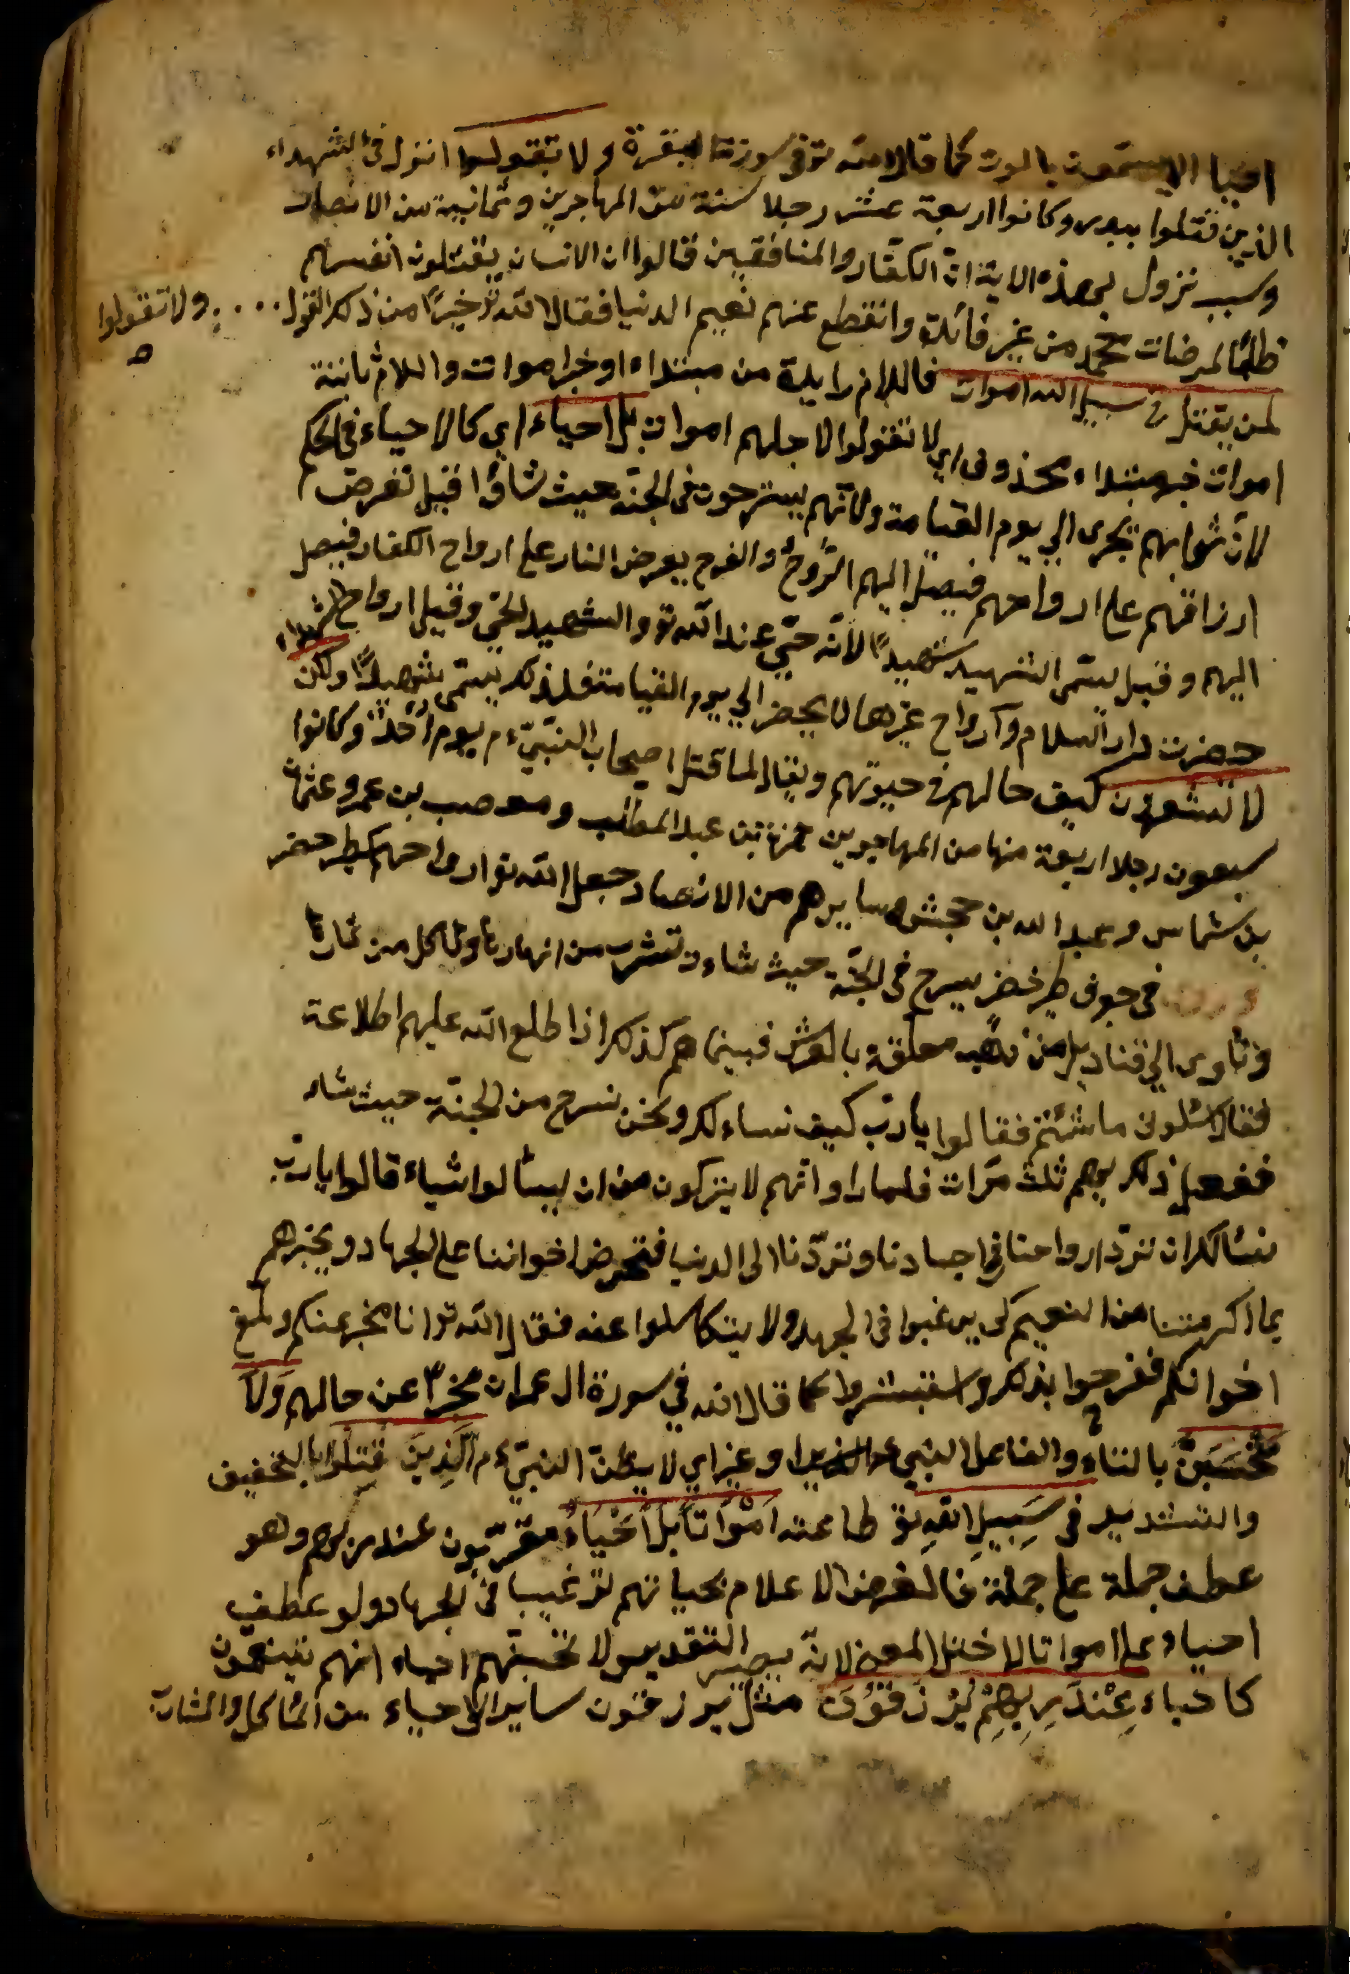 احيا لا يسمّون بالموت كما قال الله تع فى سورة البقرة ولا تقولوا انزل فى الشهداء
الذين قتلوا ببدر وكانوا اربعة عشر رجلا ستة من المهاجرين وثمانية من الانصار
وسبب نزول هذه الاية انّ الكفّار والمنافقين قالوا ان الانسان يقتلون انفسهم
طلبًا لمرضات محمد من غير فائدة وانقطع عنهم نعيم الدنيا فقال الله تع خيرًا من ذلك القول .... ولا تقولوا
لمن يقتل فى سبيل الله اموات فاللام زايدة من مبتداء او خبر اموات واللام ثابتة
اموات خبر مبتداء محذوف اى لا تقولوا لاجلهم اموات بل احياء اى كالاحياء فى الحكم
لانّ ثوابهم تجرى الى يوم القيامة ولانّهم يسترحون فى الجنّة حيث شاؤا قيل تعرض
ارزاقهم على ارواحهم فيصل اليهم الرّوح والفرح يعرض النار على ارواح الكفار فيصل
اليهم وقيل يسمّى الشهيد شهيدًا لانّه حىّ عند الله تع والشهيد الحىّ وقيل ارواح الشهداء
حضرت دار السلام وارواح غيرها لا يحضر الى يوم القيامة فلذلك يسمّى شهيدًا ولكن
لا تشعرون كيف حالهم فى حيوتهم ويقال لما قتل اصحاب النبىّ ءم يوم احد وكانوا
سبعون رجلا اربعة منها من المهاجرين حمزة بن عبد المطلب ومصعب بن عمر وعثمان
بن شماس وعبد الله بن جحش وسايرهم من الانصار جعل الله تع ارواحهم كطير خضر
فى جوف طير خضر يسرح فى الجنّة حيث شاءت تشرب من انهارها وتأكل من ثمارها
وتأوى الى قناديل من ذهب معلّقة بالعرش فبينما هم كذلك اذا طلع الله عليهم اطلاعة
فقال سئلونى ما شئتم فقالوا يا ربّ كيف نساءلك ونحن نسرح من الجنّة حيث شاء
ففعل ذلك بهم ثلث مرّات فلما راوا انّهم لا يتركون من ان يسألوا شياء قالوا يا ربّ
نسألك ان تردّ ارواحنا فى اجسادنا وتردّنا الى الدنيا فتحرض اخواننا على الجهاد ويخبرهم
بما اكرمتنا من النعيم كى يرغبوا فى الجهد ولا يتكاسلوا عنه فقال الله تع انا مخبر عنكم ومبلّغ
اخوانكم ففرحوا بذلك واستبشروا كما قال الله فى سورة ال عمران مخبرًا عن حالهم وَلَا
تَحْسَبَنَّ بالتاء والفاعل النبى وغيره اى لا يظنّ النبىّ ءم الَّذِينَ قُتِلُوا بالتخفيف
والتشديد فى سَبِيلِ اللهِ تع طاعته اَمْوَاتًا بَلْ اَحْيَاءٌ مقرّبون عند ربّهم وهو
عطف جملة على جملة فالغرض الاعلام بحياتهم لترغيبا فى الجهاد ولو عطف
احياء على امواتا لاختل المعنى لانّه يصير التقدير لا تحسبنّهم احياء انّهم يتنعّمون
كاحياء عِنْدَ رَبِّهِمْ يُرْزَقُونَ مثل يرزقون ساير الاحياء من المأكل والمشارب